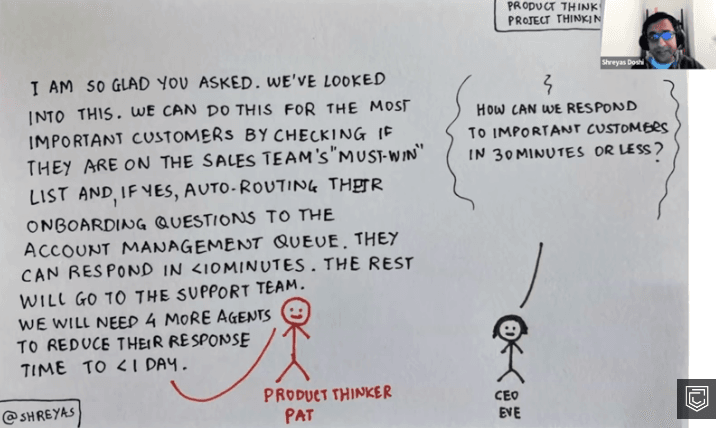 PRODUCT THINK
PROJECT THINKIN
Shreyas Doshi
HOW CAN WE RESPOND
TO IMPORTANT CUSTOMERS
IN 30 MINUTES OR LESS?
I AM SO GLAD YOU ASKED. WE'VE LOOKED
INTO THIS. WE CAN DO THIS FOR THE MOST
IMPORTANT CUSTOMERS BY CHECKING IF
THEY ARE ON THE SALES TEAM'S "MUST-WIN"
LIST AND, IF YES, AUTO-ROUTING THEIR
ONBOARDING QUESTIONS TO THE
ACCOUNT MANAGEMENT QUEUE. THEY
CAN RESPOND IN <10MINUTES. THE REST
WILL GO TO THE SUPPORT TEAM.
WE WILL NEED 4 MORE AGENTS
TO REDUCE THEIR RESPONSE
TIME TO <1 DAY.
PRODUCT THINKER
PAT
CEO
EVE
@SHREYAS